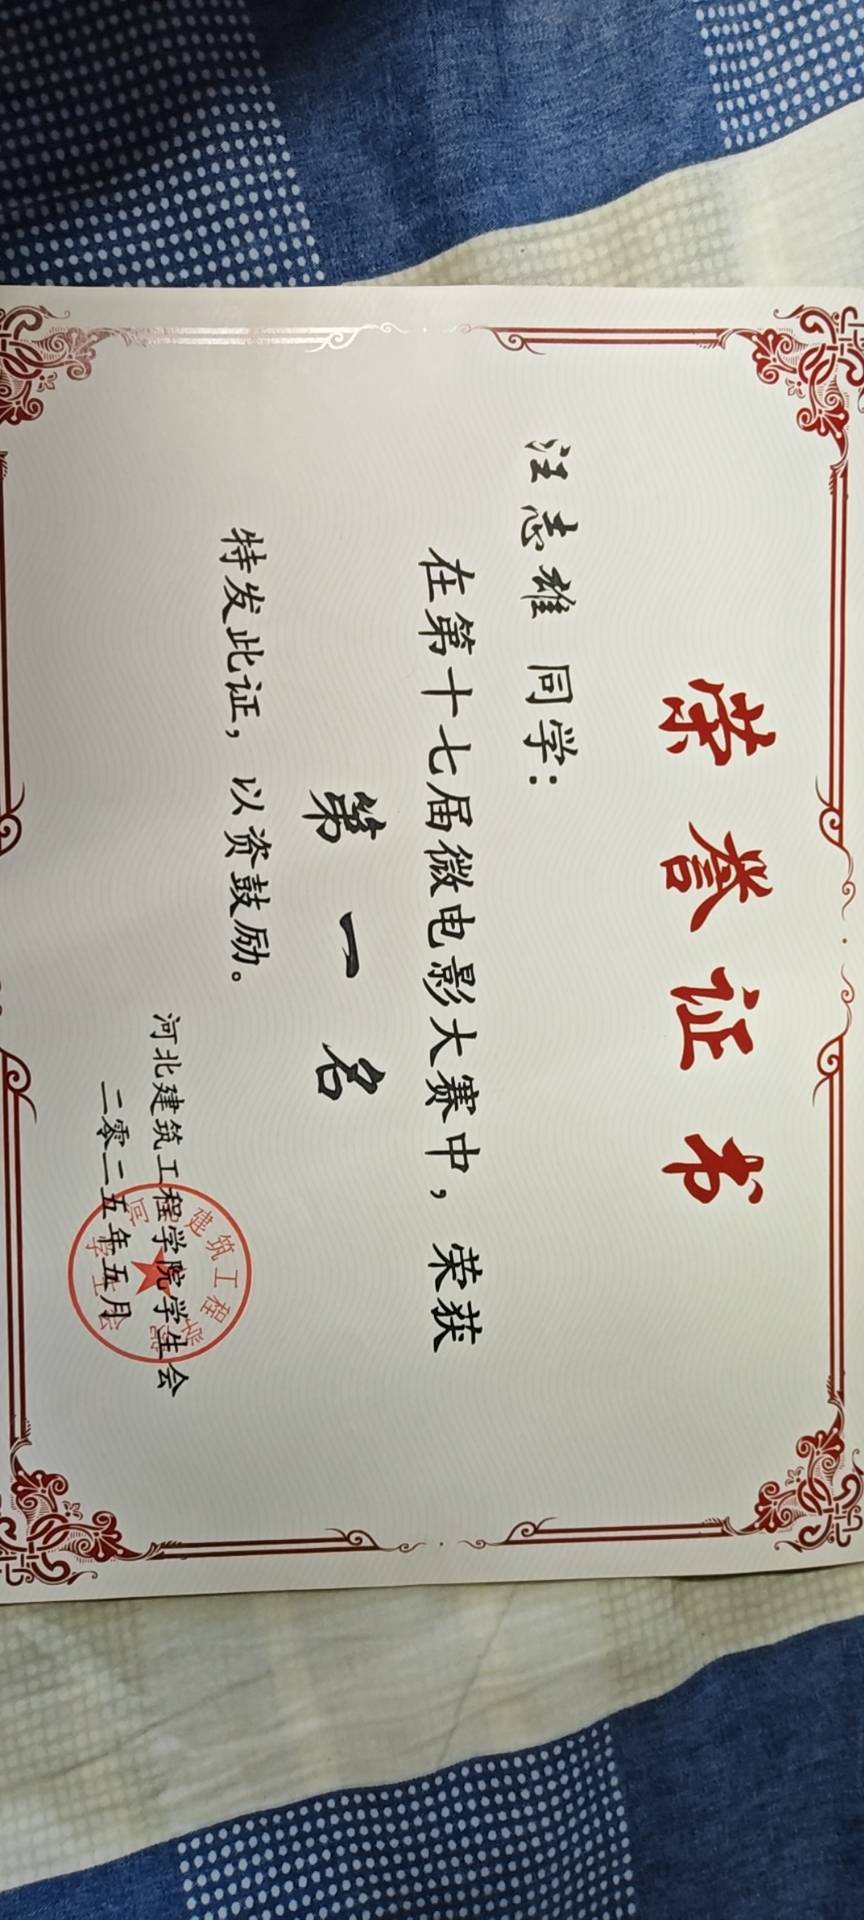 荣誉证书
汪志雄 同学：
在第十七届微电影大赛中，荣获
第一名
特发此证，以资鼓励。
河北建筑工程学院学生会
二零二五年五月